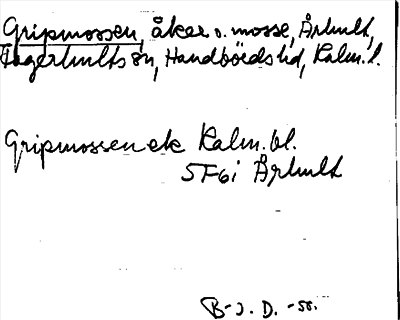 Gripmossen, åker o. mosse, Århult,
Fagerhults sn, Handbörds hd, Kalm. l.
Gripmossen ek Kalm. bl.
5F6i Århult
B-J. D. -55.